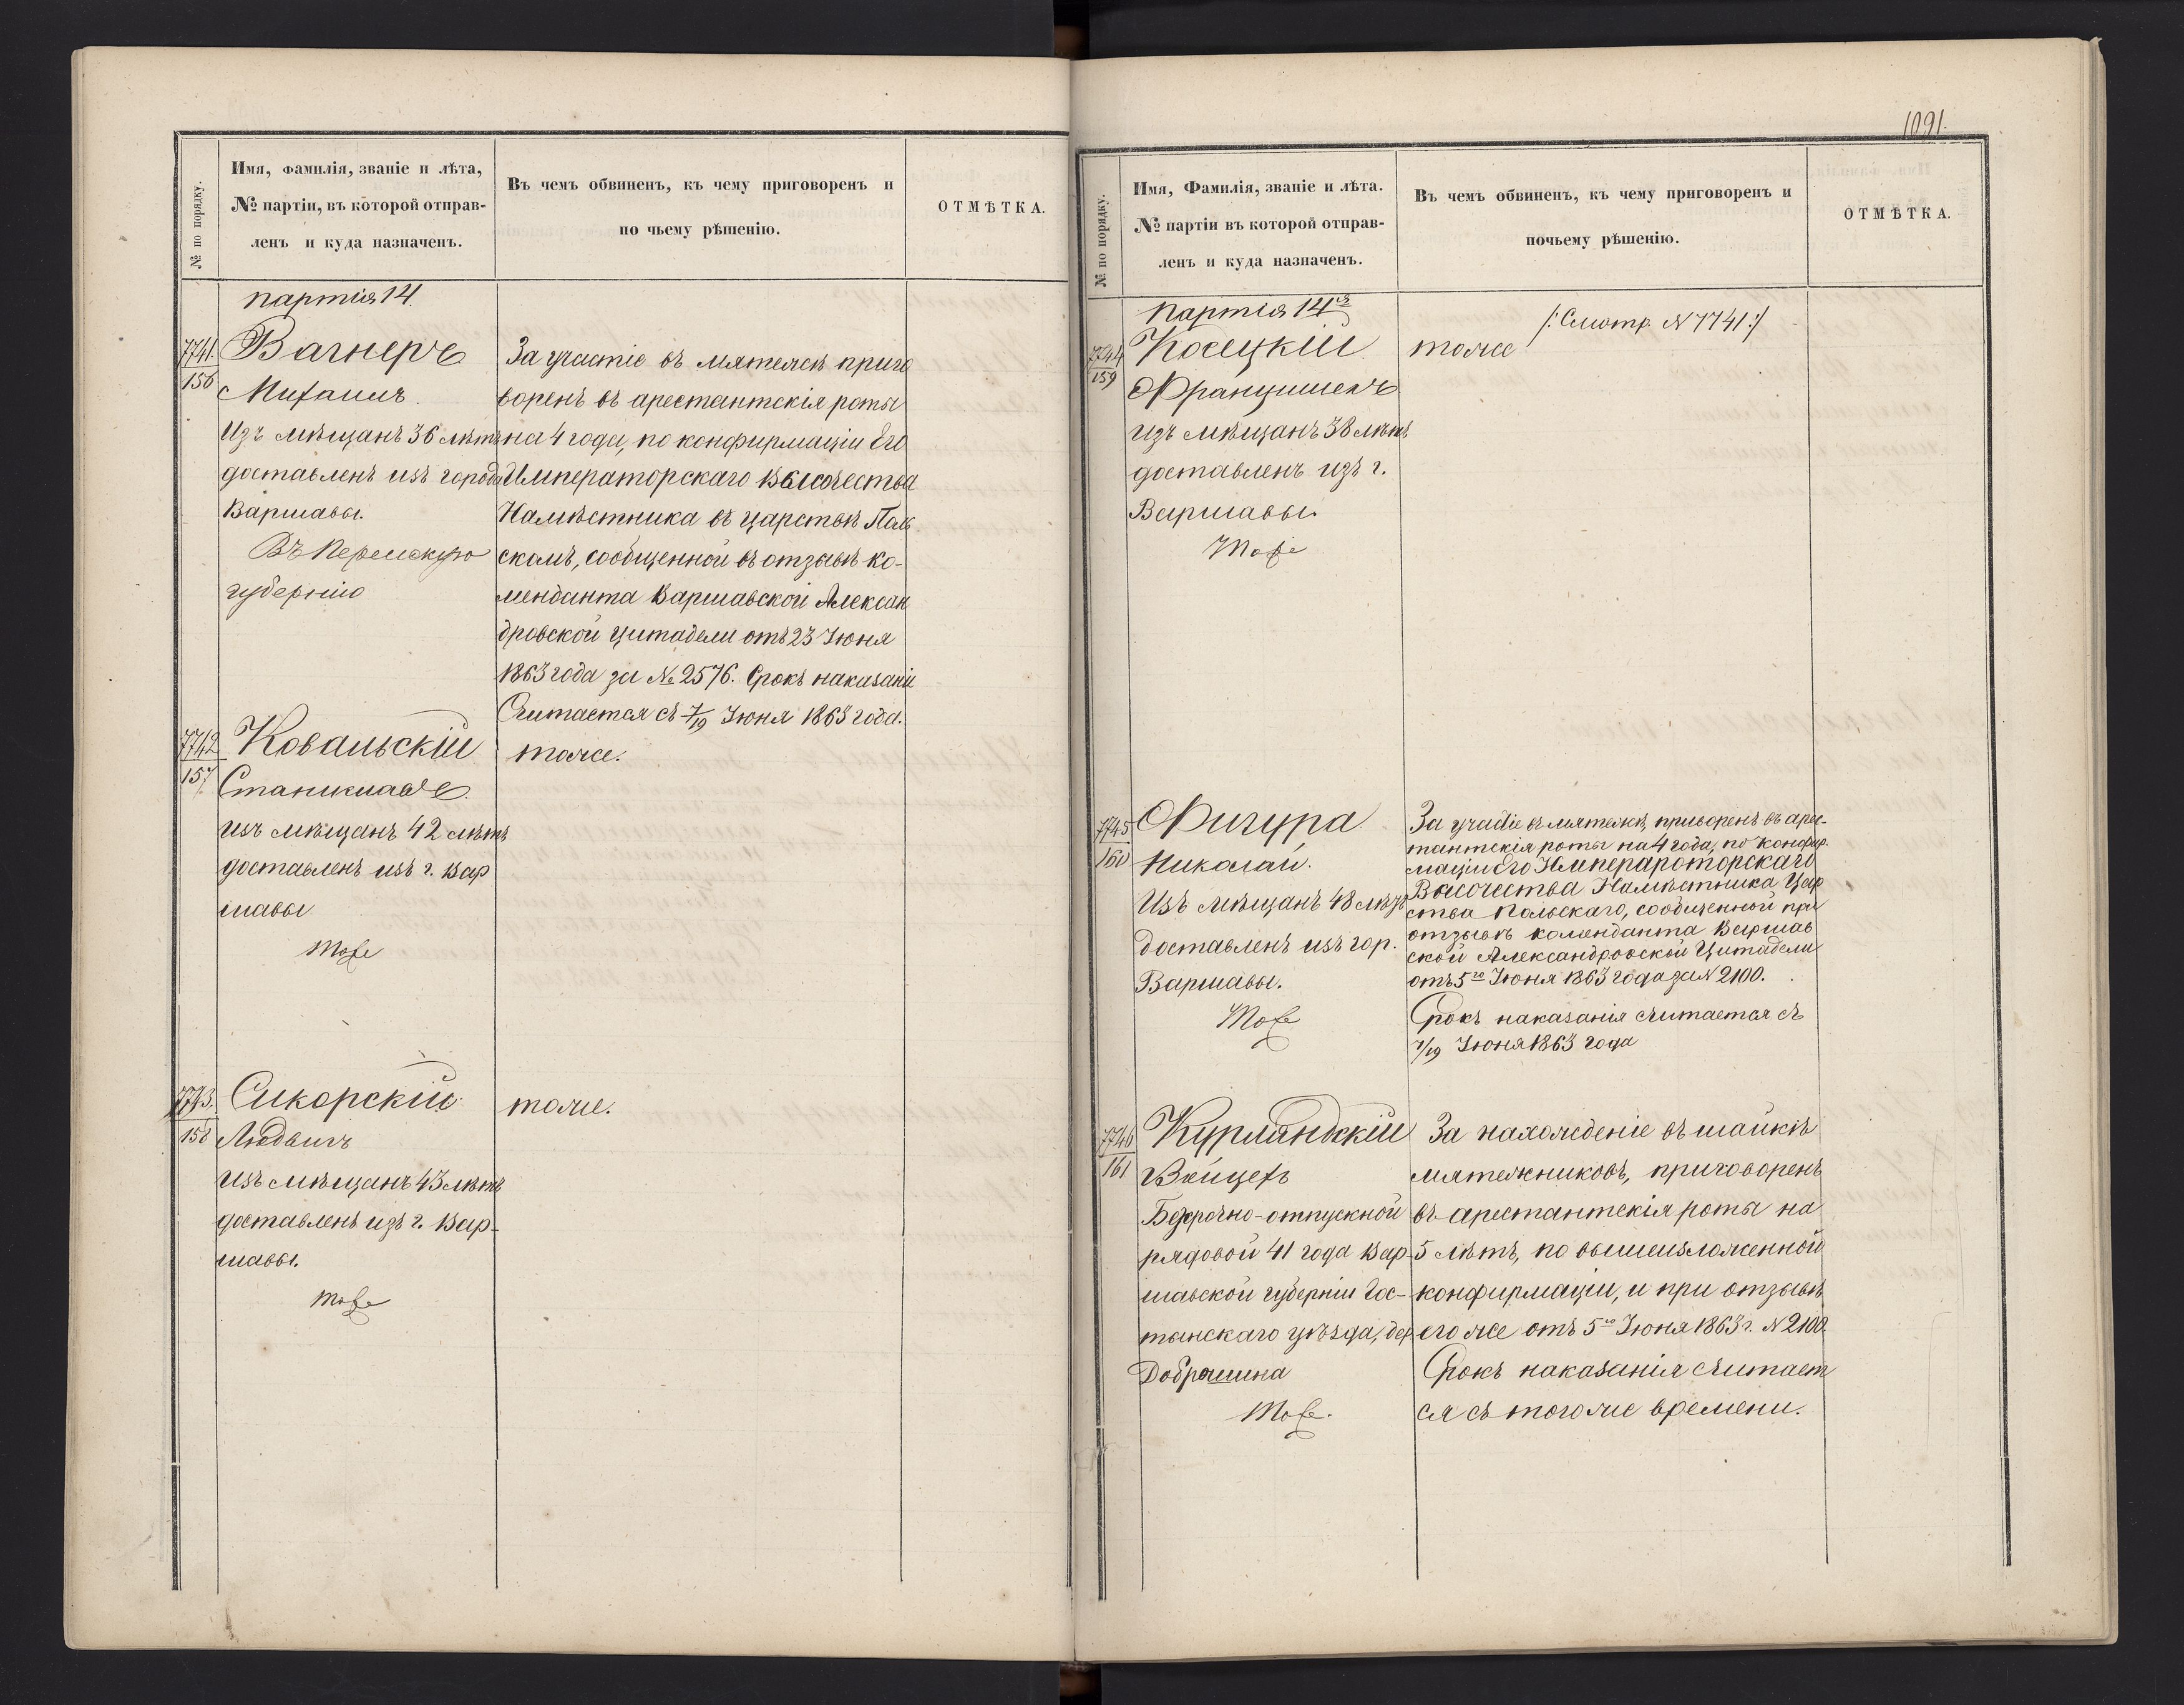 № по порядку.
Имя, Фамилія, званіе и лѣта,
№ партіи, въ которой отправ-
ленъ и куда назначенъ.
Въ чемъ обвиненъ, къ чему приговоренъ и
по чьему рѣшенію.
ОТМѢТКА.
партія 14.
7741.
156
Вагнеръ
Михаилъ.
Изъ мѣщанъ 36 лѣтъ
доставленъ изъ города
Варшавы.
Въ Пермскую
губернію
За участіе въ мятежѣ приго
воренъ въ арестантскія роты
на 4 года, по конфирмаціи Его
Императорскаго Высочества
Намѣстника въ царствѣ Поль
скомъ, сообщенной въ отзывѣ ко-
менданта Варшавской Алексан
дровской цитадели отъ 23 Іюня
1863 года за № 2576. Срокъ наказанія
Считается съ 7/19 Іюня 1863 года.
7742
157
Ковальскій
Станиславъ.
изъ мѣщанъ 42 лѣтъ
доставленъ изъ г. Вар
шавы
тоже
тоже.
7743.
158
Сикорскій
Людвигъ
изъ мѣщанъ 43 лѣтъ
доставленъ изъ г. Вар-
шавы.
тоже
тоже.
1091.
№ по порядку.
Имя, Фамилія, званіе и лѣта.
№ партіи въ которой отправ-
ленъ и куда назначенъ.
Въ чемъ обвиненъ, къ чему приговоренъ и
почьему рѣшенію.
ОТМѢТКА.
партія 14я
7744
159
Косецкій
Францишекъ
изъ мѣщанъ 38 лѣтъ
доставленъ изъ г.
Варшавы.
тоже
/: Смотр. N 7741:/
тоже
7745
160
Фигура
Николай.
Изъ мѣщанъ 48 лѣтъ
доставленъ изъ гор.
Варшавы.
Тоже
За участіе въ мятежѣ, приворенъ въ арес-
тантскія роты на 4 года, по конфир.
маціи Его Императороторскаго
Высочества Намѣстника Цар
ства Польскаго, сообщенной при
отзывѣ коменданта Варшав
ской Александровской Цитадели
отъ 5го Іюня 1863 года за N 2100.
Срокъ наказанія считается съ
7/19 Іюня 1863 года
7746
161
Курляндскій
Войцехъ
Безсрочно-отпускной
рядовой 41 года Вар-
шавской губерніи Гос-
тынскаго уѣзда, дер.
Тоже.
За нахожденіе въ шайкѣ
мятежниковъ, приговоренъ
въ арестантскія роты на
5 лѣтъ, по вышеизложенной
конфирмаціи, и при отзывѣ
его же отъ 5го Іюня 1863 г. N 2100.
Срокъ наказанія считает
ся съ того же времени.